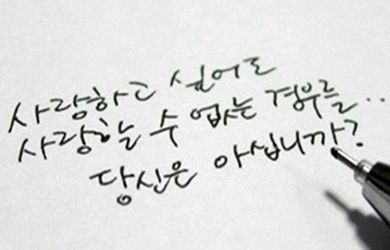 사랑하고 싶어도
사랑할 수 없는 경우를..
당신은 아십니까?